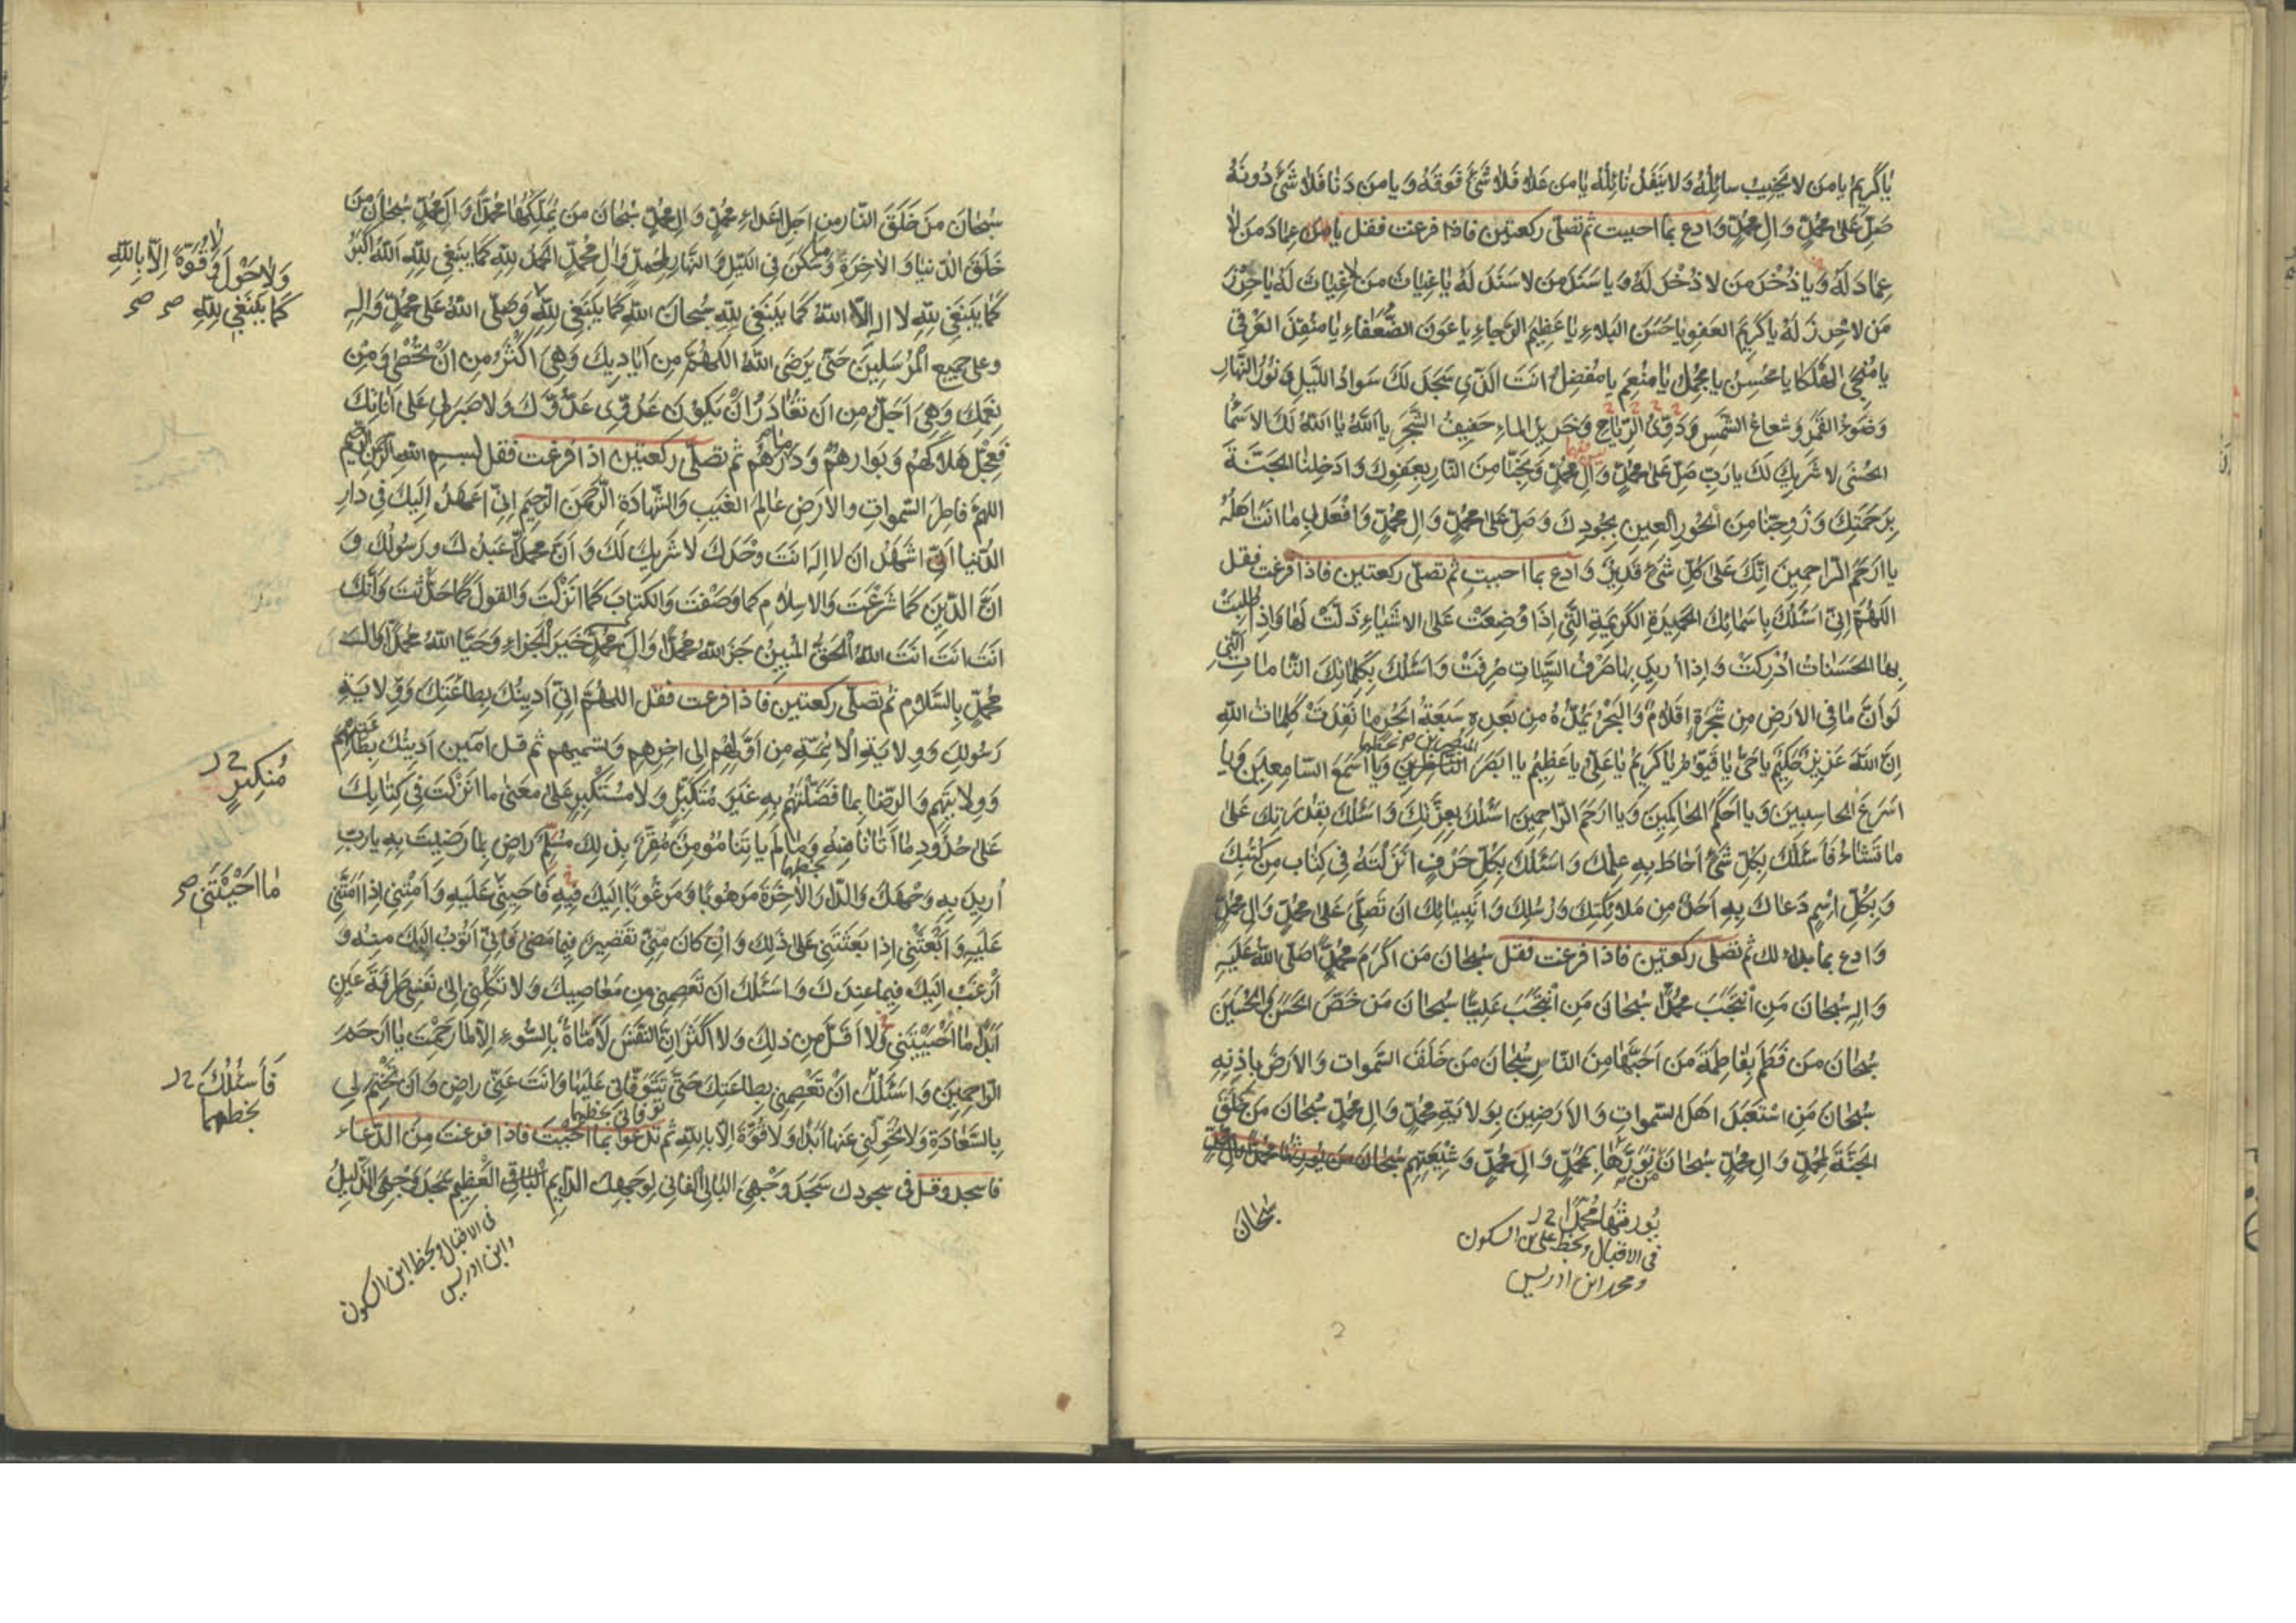 يا كَرِيمُ يا مَن لا يَخِيبُ سائِلُهُ وَلا يَنْفَدُ نائِلُهُ يا مَن عَلا فَلا شَىْءَ فَوقَهُ وَيا مَن دَنا فَلا شَىْءَ دُونَهُ
صَلِّ عَلى مُحَمَّدٍ وَالِ مُحَمَّدٍ وَادع بما احببت ثم تصلّى ركعتين فاذا فرغت فقل يا عِمادَ مَن لا
عِمادَ لَهُ وَيا ذُخْرَ مَن لا ذُخْرَ لَهُ وَيا سَنَدَ مَن لا سَنَدَ لَهُ يا غِياثَ مَن لا غِياثَ لَهُ يا حِرْزَ
مَن لا حِرزَ لَهُ يا كَرِيمَ العَفوِ يا حَسَنَ البَلاءِ يا عَظِيمَ الرَّجاءِ يا عَونَ الضُّعَفاءِ يا مُنقِذَ الغَرْقى
يا مُنْجِىَ الهَلْكى يا مُحسِنُ يا مُجمِلُ يا مُنعِمُ يا مُفضِلُ اَنتَ الَّذى سَجَدَ لَكَ سَوادُ اللَّيلِ وَنُورُ النَّهارِ
وَضَوءُ القَمَرِ وَشُعاعُ الشَّمسِ وَدَوِىُّ الرِّياحِ وَخَرِيرُ الماءِ حَفِيفُ الشَّجَرِ يا اَللهُ يا اَللهُ لَكَ الاَسْماءُ
الحُسْنى لا شَرِيكَ لَكَ يا رَبِّ صَلِّ عَلى مُحَمَّدٍ وَالِ مُحَمَّدٍ وَنَجِّنا مِنَ النّارِ بِعَفوِكَ وَادخِلنا الجَنَّةَ
بِرَحمَتِكَ وَزَوِّجنا مِنَ الحُورِ العِينِ بِجُودِكَ وَصَلِّ عَلى مُحَمَّدٍ وَالِ مُحَمَّدٍ وَافعَل بِى ما اَنتَ اَهلُهُ
يا اَرحَمَ الرّاحِمِينَ اِنَّكَ عَلى كُلِّ شَىْءٍ قَدِيرٌ وَادع بما احببت ثم تصلّى ركعتين فاذا فرغت فقل
اللهُمَّ اِنّى اَسئَلُكَ بِاَسمائِكَ الحَمِيدَةِ الكَرِيمَةِ الَّتى اِذا وُضِعَتْ عَلَى الاَشياءِ ذَلَّتْ لَها وَاِذا طُلِبَتْ
بِهَا الحَسَناتُ اُدْرِكَتْ وَاِذا اُرِيدَ بِها صَرْفُ السَّيِّئاتِ صُرِفَتْ وَاَسئَلُكَ بِكَلِماتِكَ التّامّاتِ الَّتى
لَو اَنَّ ما فِى الاَرضِ مِن شَجَرَةٍ اَقلامٌ وَالبَحْرُ يَمُدُّهُ مِن بَعدِهِ سَبعَةُ اَبْحُرٍ ما نَفِدَتْ كَلِماتُ اللهِ
اِنَّ اللهَ عَزِيزٌ حَكِيمٌ يا حَىُّ يا قَيُّومُ يا كَرِيمُ يا عَلِىُّ يا عَظِيمُ يا اَبصَرَ النّاظِرِينَ وَيا اَسمَعَ السّامِعِينَ وَيا
اَسرَعَ الحاسِبِينَ وَيا اَحكَمَ الحاكِمِينَ وَيا اَرحَمَ الرّاحِمِينَ اَسئَلُكَ بِعِزَّتِكَ وَاَسئَلُكَ بِقُدرَتِكَ عَلى
ما تَشاءُ فَاَسئَلُكَ بِكُلِّ شَىْءٍ اَحاطَ بِهِ عِلمُكَ وَاَسئَلُكَ بِكُلِّ حَرفٍ اَنزَلْتَهُ فِى كِتابٍ مِن كُتُبِكَ
وَبِكُلِّ اسمٍ دَعاكَ بِهِ اَحَدٌ مِن مَلائِكَتِكَ وَرُسُلِكَ وَاَنبِيائِكَ اَن تُصَلِّىَ عَلى مُحَمَّدٍ وَالِ مُحَمَّدٍ
وَادع بما بدا لك ثم تصلى ركعتين فاذا فرغت فقل سُبحانَ مَن اَكرَمَ مُحَمَّدًا صَلَّى اللهُ عَلَيهِ
وَالِهِ سُبحانَ مَنِ انْتَجَبَ مُحَمَّدًا سُبحانَ مَنِ انْتَجَبَ عَلِيًّا سُبحانَ مَن خَصَّ الحَسَنَ وَالحُسَينَ
سُبحانَ مَن فَطَمَ بِفاطِمَةَ مَن اَحَبَّها مِنَ النّارِ سُبحانَ مَن خَلَقَ السَّمواتِ وَالاَرضَ بِاِذنِهِ
سُبحانَ مَنِ اسْتَعبَدَ اَهلَ السَّمواتِ وَالاَرَضِينَ بِوِلايَةِ مُحَمَّدٍ وَالِ مُحَمَّدٍ سُبحانَ مَن خَلَقَ
الجَنَّةَ لِمُحَمَّدٍ وَالِ مُحَمَّدٍ سُبحانَ مَن نَوَّرَها بِمُحَمَّدٍ وَالِ مُحَمَّدٍ وَشِيعَتِهِم سُبحانَ مَن يُورِثُها مُحَمَّدًا وَالَ مُحَمَّدٍ
يُورِثُها مُحَمَّدًا
فى الاقبال وبخط على بن السكون
ومحمد ابن ادريس
سُبحانَ
سُبحانَ مَن خَلَقَ النّارَ مِن اَجلِ اَعداءِ مُحَمَّدٍ وَالِ مُحَمَّدٍ سُبحانَ مَن يُمَلِّكُها مُحَمَّدًا وَالَ مُحَمَّدٍ سُبحانَ مَن
خَلَقَ الدُّنيا وَالاخِرَةَ وَما سَكَنَ فِى اللَّيلِ وَالنَّهارِ لِمُحَمَّدٍ وَالِ مُحَمَّدٍ الحَمدُ لِلهِ كَما يَنبَغِى لِلهِ اَللهُ اَكبَرُ
كَما يَنبَغِى لِلهِ لا اِلهَ اِلَّا اللهُ كَما يَنبَغِى لِلهِ سُبحانَ اللهِ كَما يَنبَغِى لِلهِ وَصَلَّى اللهُ عَلى مُحَمَّدٍ وَالِهِ
وَلا حَولَ وَلا قُوَّةَ اِلّا بِاللهِ
كَما يَنبَغِى لِلهِ صح صح
وعلى جَمِيعِ المُرسَلِينَ حَتّى يَرضَى اللهُ اللهُمَّ مِن اَيادِيكَ وَهِىَ اَكثَرُ مِن اَنْ تُحْصى وَمِن
نِعَمِكَ وَهِىَ اَجَلُّ مِن اَن تُغادَرَ اَنْ يَكُونَ عَدُوّى عَدُوَّكَ وَلا صَبرَ لِى عَلى اَناتِكَ
فَعَجِّل هَلاكَهُم وَبَوارَهُم وَدَمارَهُم ثم تصلّى ركعتين اذا فرغت فقل بسم الله الرحمن الرحيم
اللهُمَّ فاطِرَ السَّمواتِ وَالاَرضِ عالِمَ الغَيبِ وَالشَّهادَةِ الرَّحمنَ الرَّحِيمَ اِنّى اَعهَدُ اِلَيكَ فِى دارِ
الدُّنيا اَنّى اَشهَدُ اَن لا اِلهَ اَنتَ وَحْدَكَ لا شَرِيكَ لَكَ وَاَنَّ مُحَمَّدًا عَبدُكَ وَرَسُولُكَ وَ
اَنَّ الدِّينَ كَما شَرَعْتَ وَالاِسلامَ كَما وَصَفتَ وَالكِتابَ كَما اَنزَلتَ وَالقَولَ كَما حَدَّثتَ وَاَنَّكَ
اَنتَ اَنتَ اَنتَ اللهُ الحَقُّ المُبِينُ جَزَى اللهُ مُحَمَّدًا وَالَ مُحَمَّدٍ خَيرَ الجَزاءِ وَحَيَّا اللهُ مُحَمَّدًا وَالَ
مُحَمَّدٍ بِالسَّلامِ ثم تصلّى ركعتين فاذا فرغت فقل اللهُمَّ اِنّى اَدِينُكَ بِطاعَتِكَ وَوِلايَةِ
رَسُولِكَ وَوِلايَةِ الاَئِمَّةِ مِن اَوَّلِهِم اِلى اخِرِهِم وتسمّيهم ثم قل امين اَدِينُكَ بِطاعَتِهِم
وَوِلايَتِهِم وَالرِّضا بِما فَضَّلتَهُم بِهِ غَيرَ مُتَكَبِّرٍ وَلا مُستَكبِرٍ عَلى مَعنى ما اَنزَلتَ فِى كِتابِكَ
مُنكِرٍ
عَلى حُدُودِ ما اَتانا فِيهِ وَما لَم يَاتِنا مُؤمِنٌ مُقِرٌّ بِذلِكَ مُسَلِّمٌ راضٍ بِما رَضِيتَ بِهِ يا رَبِّ
بخطهما
اُرِيدُ بِهِ وَجهَكَ وَالدّارَ الاخِرَةَ مَرهُوبًا وَمَرغُوبًا اِلَيكَ فِيهِ فَاَحيِنى عَلَيهِ وَاَمِتنِى اِذا اَمَتَّنِى
ما اَحيَيْتَنِى صح
عَلَيهِ وَابْعَثْنِى اِذا بَعَثتَنِى عَلى ذلِكَ وَاِن كانَ مِنّى تَقصِيرٌ فِيما مَضى فَاِنّى اَتُوبُ اِلَيكَ مِنهُ وَ
اَرْغَبُ اِلَيكَ فِيما عِندَكَ وَاَسئَلُكَ اَن تَعصِمَنِى مِن مَعاصِيكَ وَلا تَكِلنِى اِلى نَفسِى طَرفَةَ عَينٍ
اَبَدًا ما اَحيَيتَنِى وَلا اَقَلَّ مِن ذلِكَ وَلا اَكثَرَ اِنَّ النَّفسَ لَاَمّارَةٌ بِالسُّوءِ اِلّا ما رَحِمتَ يا اَرحَمَ
الرّاحِمِينَ وَاَسئَلُكَ اَنْ تَعصِمَنِى بِطاعَتِكَ حَتّى تَتَوَفّانِى عَلَيها وَاَنتَ عَنّى راضٍ وَاَن تَختِمَ لِى
فَاَسئَلُكَ
بخطهما
توفانى بخطهما
بِالسَّعادَةِ وَلا تُحَوِّلَنِى عَنها اَبَدًا وَلا قُوَّةَ اِلّا بِاللهِ ثم تدعو بما احببت فاذا فرغت من الدعاء
فاسجد وقل فى سجودك سَجَدَ وَجهِىَ البالِى الفانِى لِوَجهِكَ الدّايِمِ الباقِى العَظِيمِ سَجَدَ وَجهِىَ الذَّلِيلُ
فى الاقبال وبخط ابن السكون
وابن ادريس